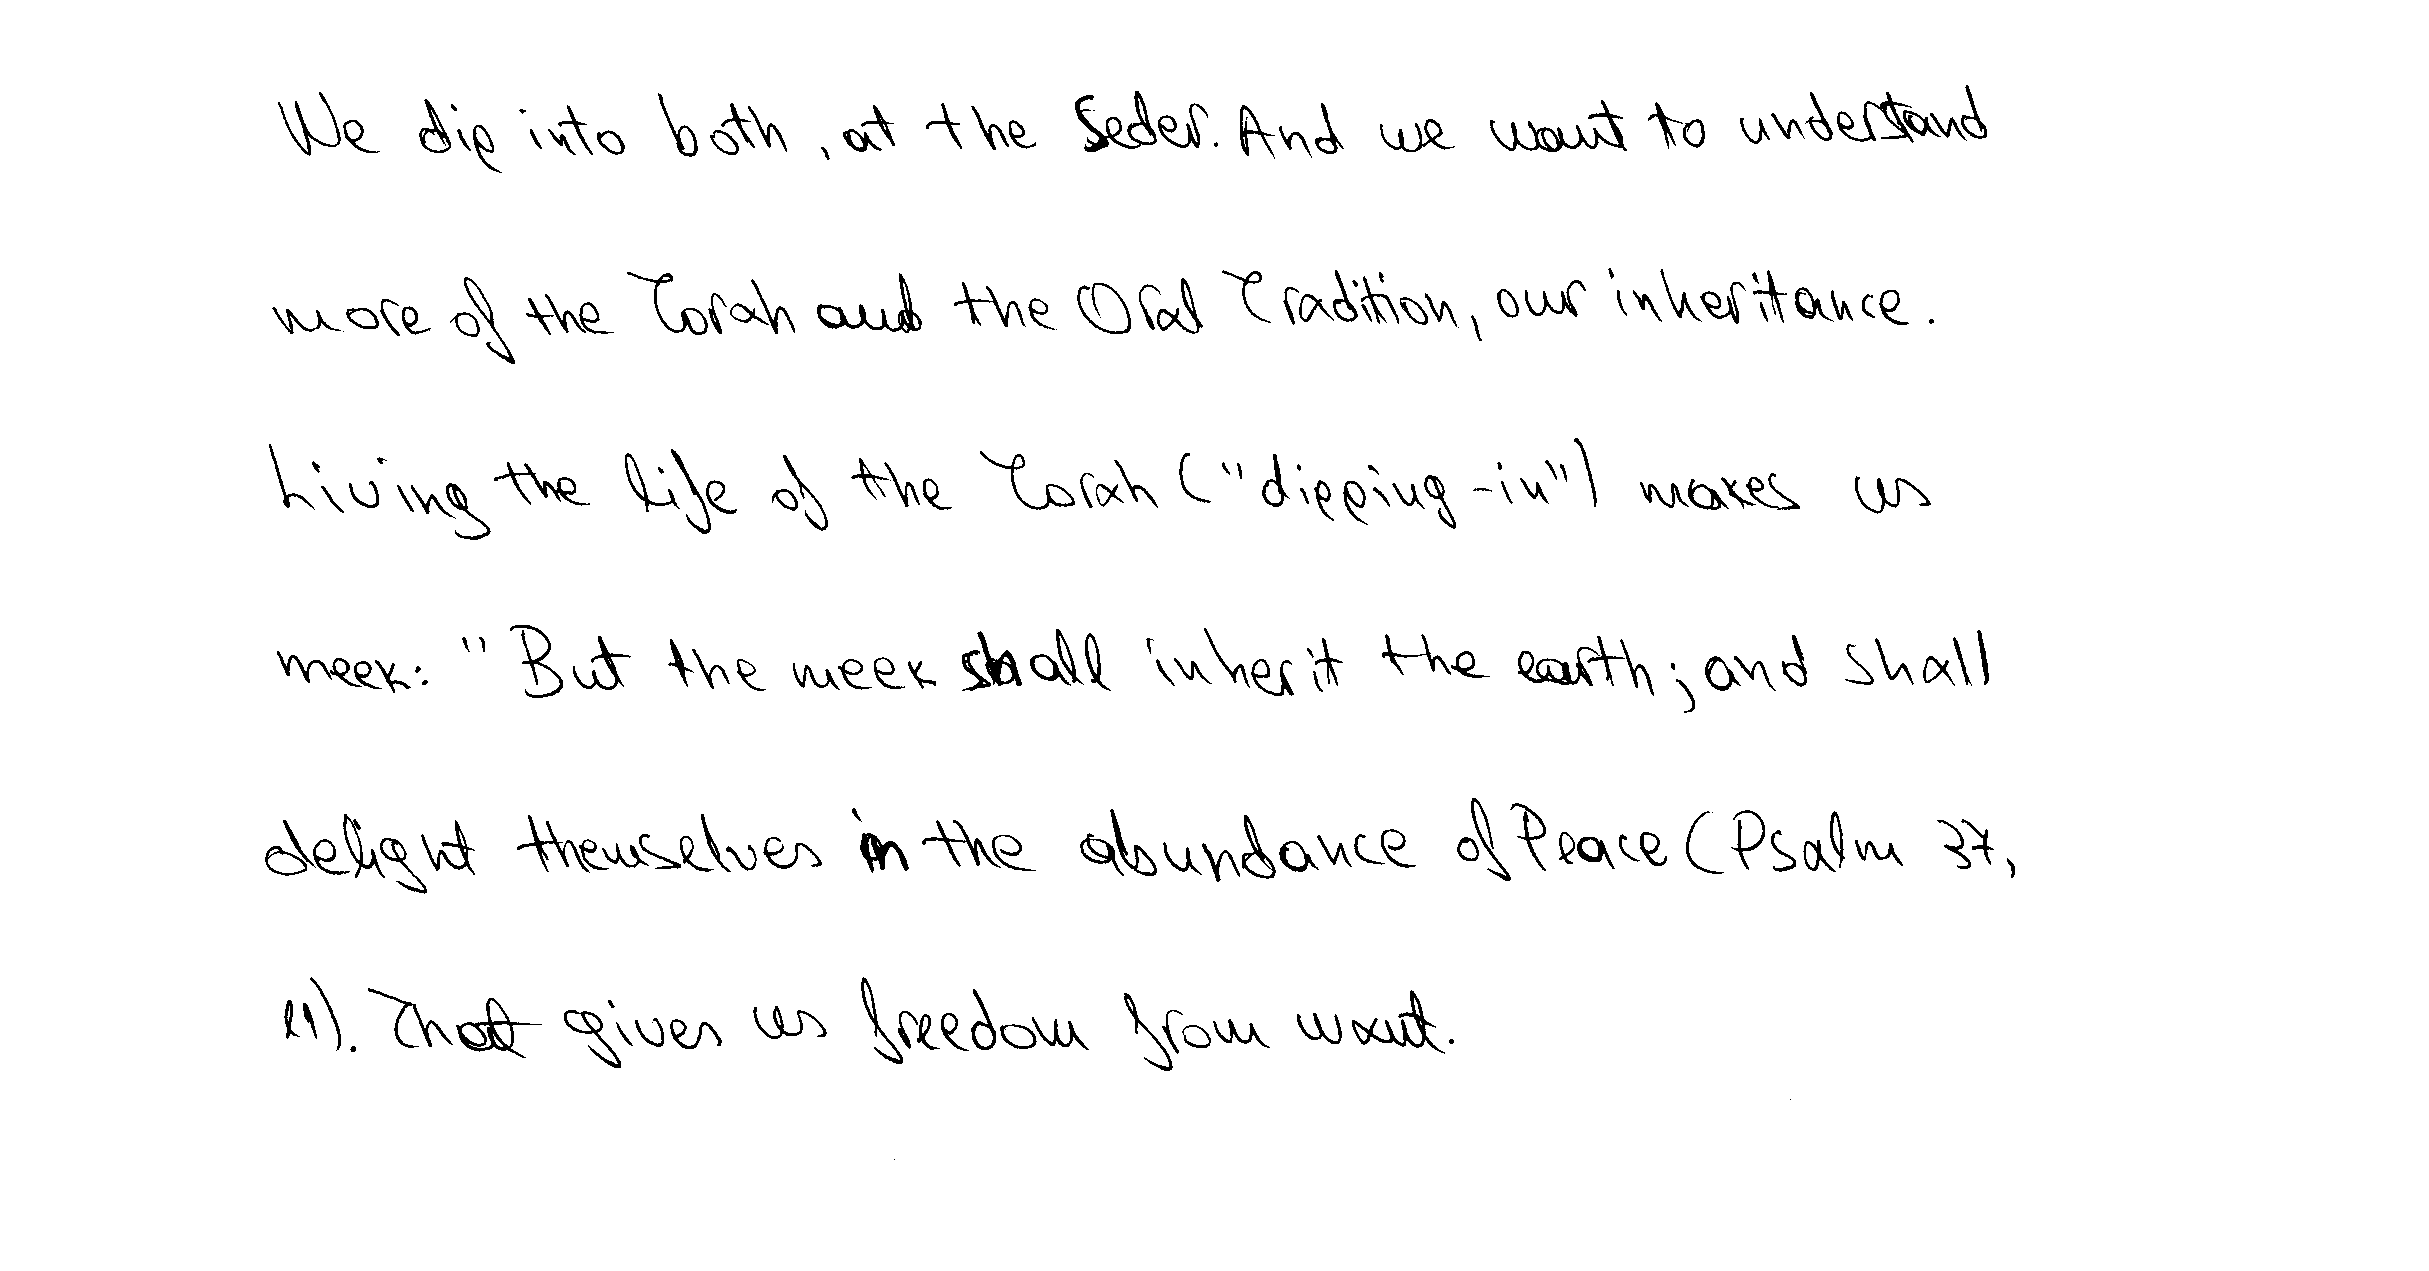 We dip into both, at the Seder. And we want to understand
more of the Torah and the Oral Tradition, our inheritance.
Living the life of the Torah ("dipping-in") makes us
meek: "But the meek shall inherit the earth; and shall
delight themselves in the abundance of Peace (Psalm 37,
11). That gives us freedom from want.